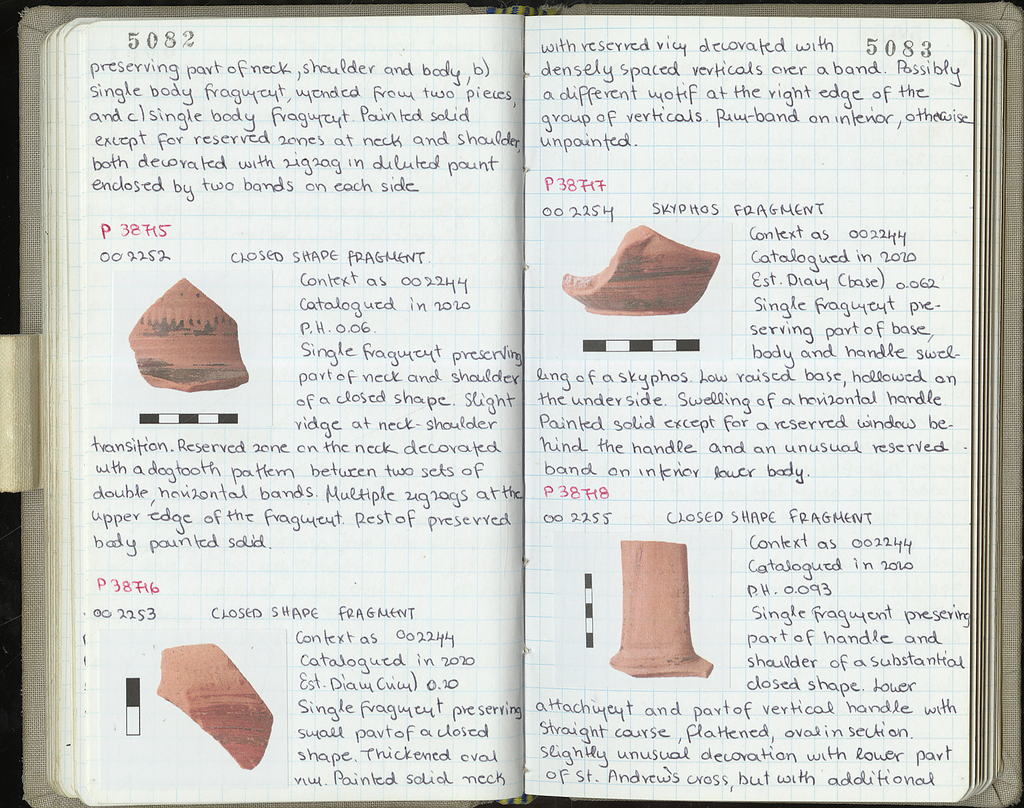 5082
preserving part of neck, shoulder and body, b)
single body fragment, mended from two pieces,
and c) single body fragment. Painted solid
except for reserved zones at neck and shoulder,
both decorated with zigzag in diluted paint
enclosed by two bands on each side
P 38715
002252 CLOSED SHAPE FRAGMENT.
Context as 002244
Catalogued in 2020
P.H. 0.06.
Single fragment preserving
part of neck and shoulder
of a closed shape. Slight
ridge at neck-shoulder
transition. Reserved zone on the neck decorated
with a dogtooth pattern between two sets of
double, horizontal bands. Multiple zigzags at the
upper edge of the fragment. Rest of preserved
body painted solid.
P 38716
002253 CLOSED SHAPE FRAGMENT
Context as 002244
Catalogued in 2020
Est. Diam (rim) 0.20
Single fragment preserving
small part of a closed
shape. Thickened oval
rim. Painted solid neck
5083
with reserved rim decorated with
densely spaced verticals over a band. Possibly
a different motif at the right edge of the
group of verticals. Rim-band on interior, otherwise
unpainted.
P 38717
002254 SKYPHOS FRAGMENT
Context as 002244
Catalogued in 2020
Est. Diam (base) 0.062
Single fragment pre-
serving part of base,
body and handle swel-
ling of a skyphos. Low raised base, hollowed on
the underside. Swelling of a horizontal handle
Painted solid except for a reserved window be-
hind the handle and an unusual reserved
band on interior lower body.
P 38718
002255 CLOSED SHAPE FRAGMENT
Context as 002244
Catalogued in 2020
P.H. 0.093
Single fragment presering
part of handle and
shoulder of a substantial
closed shape. Lower
attachment and part of vertical handle with
straight course, flattened, oval in section.
Slightly unusual decoration with lower part
of St. Andrew's cross, but with additional